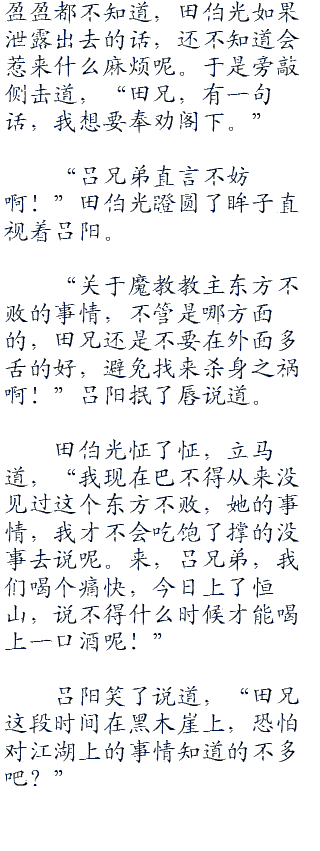 盈盈都不知道，田伯光如果
泄露出去的话，还不知道会
惹来什么麻烦呢。于是旁敲
侧击道，“田兄，有一句
话，我想要奉劝阁下。”
“吕兄弟直言不妨
啊！”田伯光瞪圆了眸子直
视着吕阳。
“关于魔教教主东方不
败的事情，不管是哪方面
的，田兄还是不要在外面多
舌的好，避免找来杀身之祸
啊！”吕阳抿了唇说道。
田伯光怔了怔，立马
道，“我现在巴不得从来没
见过这个东方不败，她的事
情，我才不会吃饱了撑的没
事去说呢。来，吕兄弟，我
们喝个痛快，今日上了恒
山，说不得什么时候才能喝
上一口酒呢！”
吕阳笑了说道，“田兄
这段时间在黑木崖上，恐怕
对江湖上的事情知道的不多
吧？”